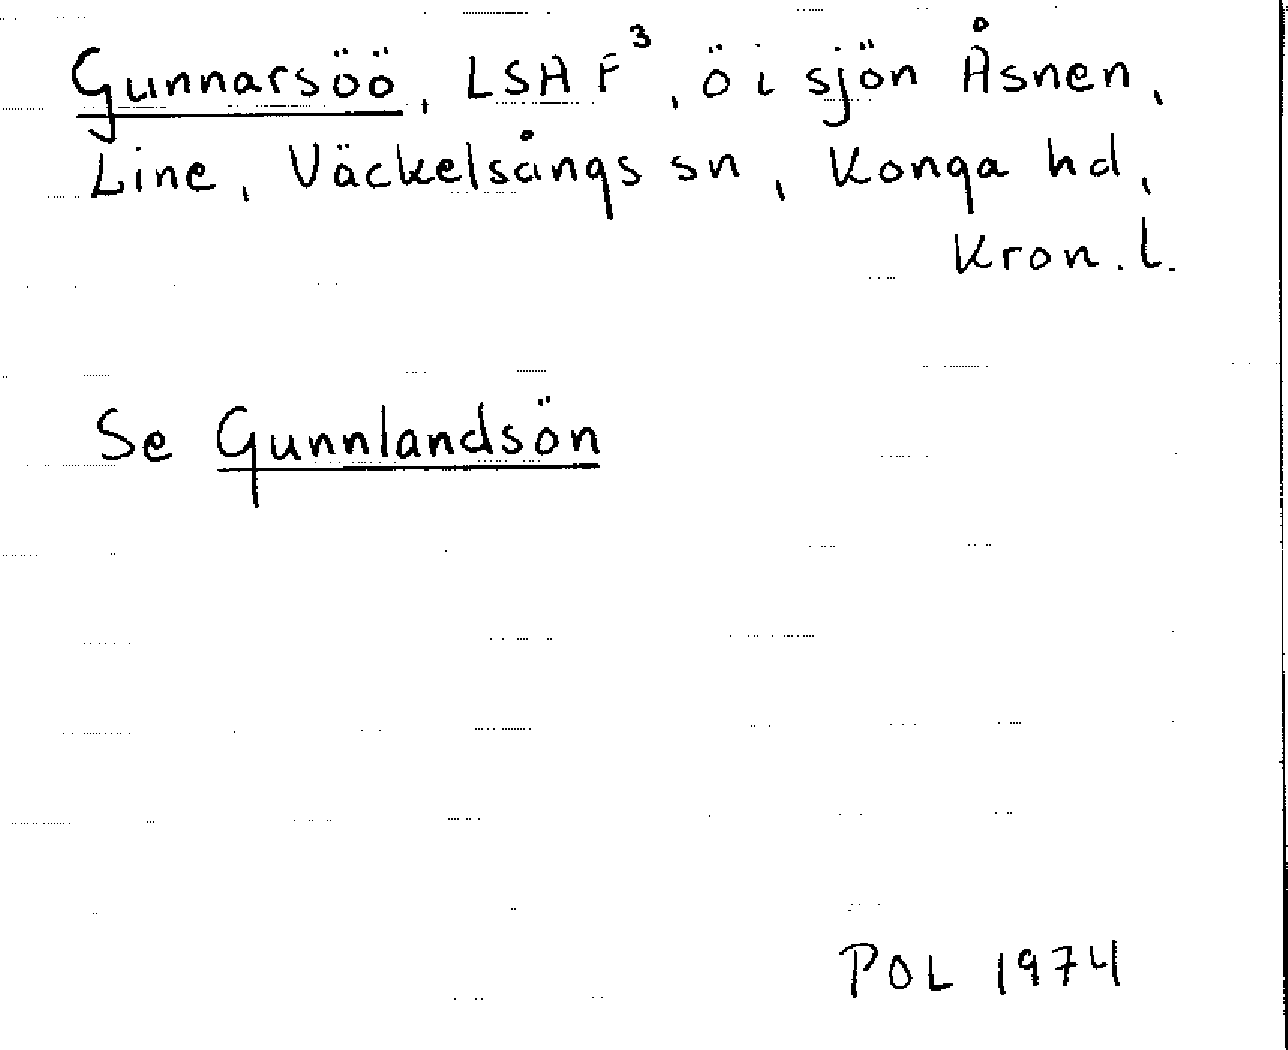 Gunnarsöö, LSA F³, ö i sjön Åsnen,
Line, Väckelsångs sn, Konga hd,
Kron. l.
Se Gunnlandsön
POL 1974